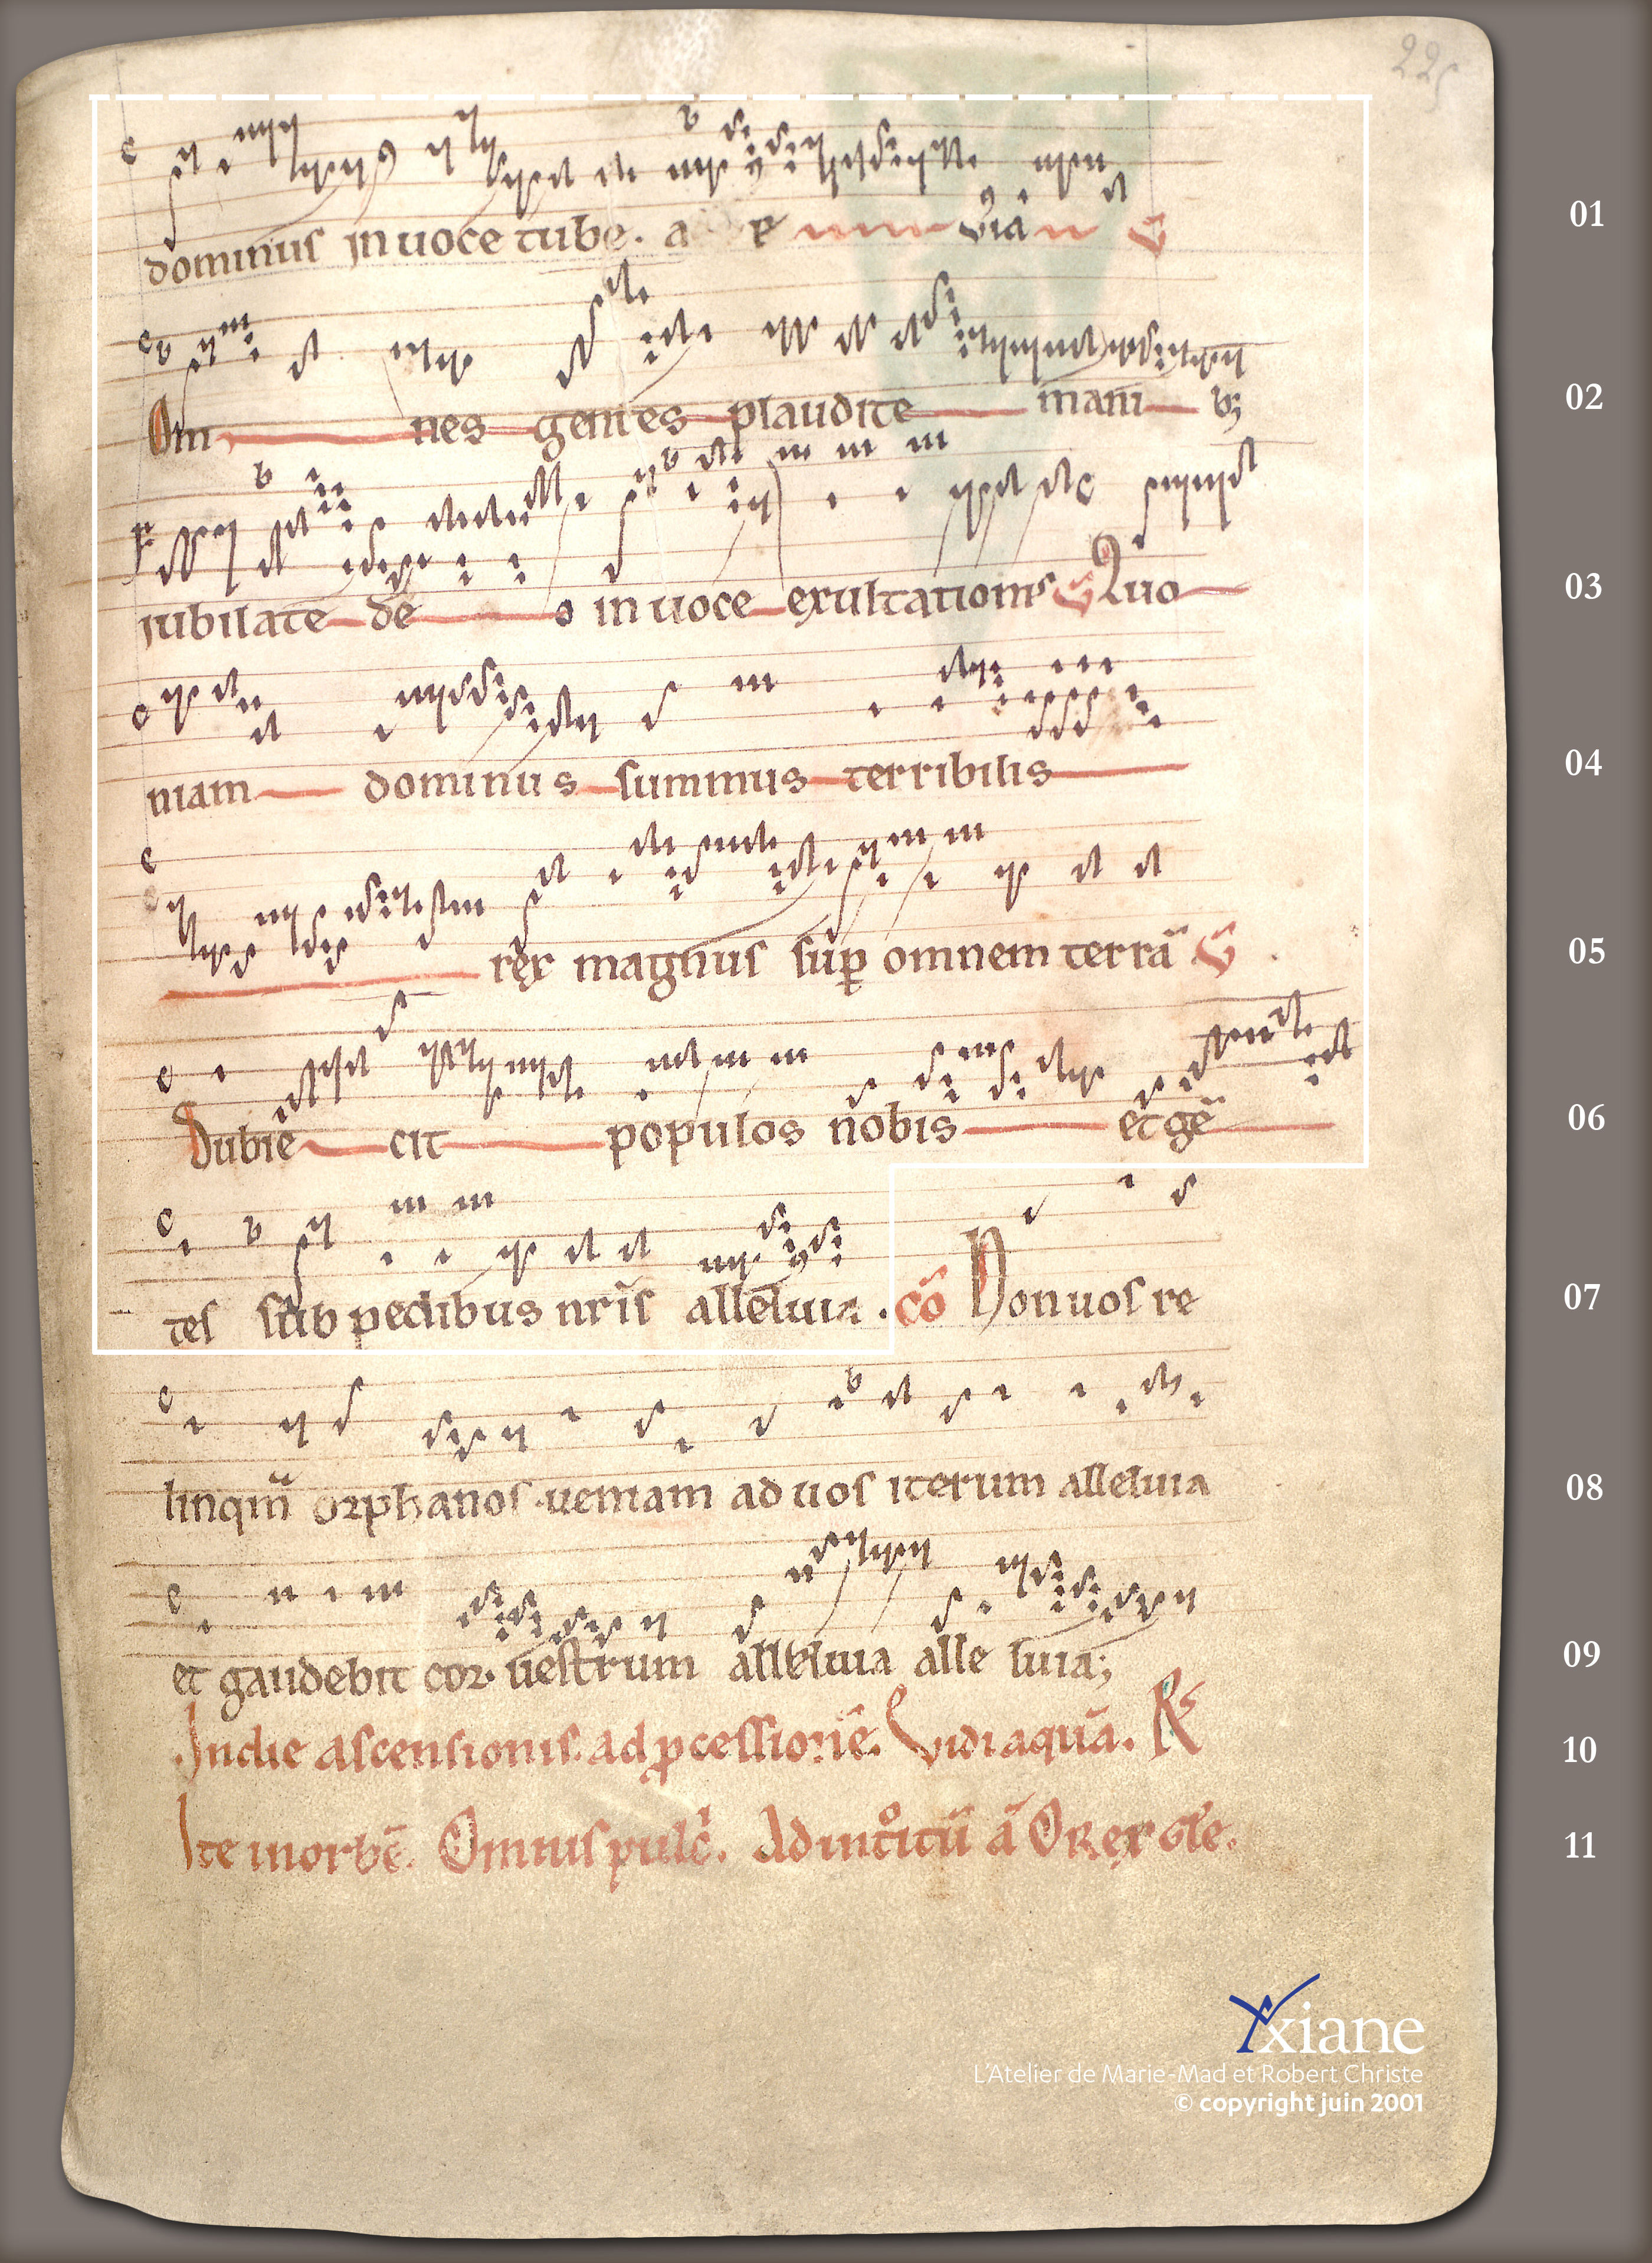 225
dominus in uoce tube. a e uia
01
Om nes gentes plaudite mani b;
02
iubilate de o in uoce exultationis Quo
03
niam dominus summus terribilis
04
rex magnus sup omnem terrã
05
Subiẽ cit populos nobis et gẽ
06
tes sub pedibus nrĩs alleluia . cõ Non uos re
07
linqm̃ orphanos .ueniam ad uos iterum alleluia
08
et gaudebit cor uestrum alleluia alle luia;
09
.In die ascensionis. ad pcessionẽ. Vidi aquã.
10
Ite in orbẽ. Omnis pulc. Ad introitũ ã O Rex gle.
11
Yxiane
L'Atelier de Marie-Mad et Robert Christe
© copyright juin 2001